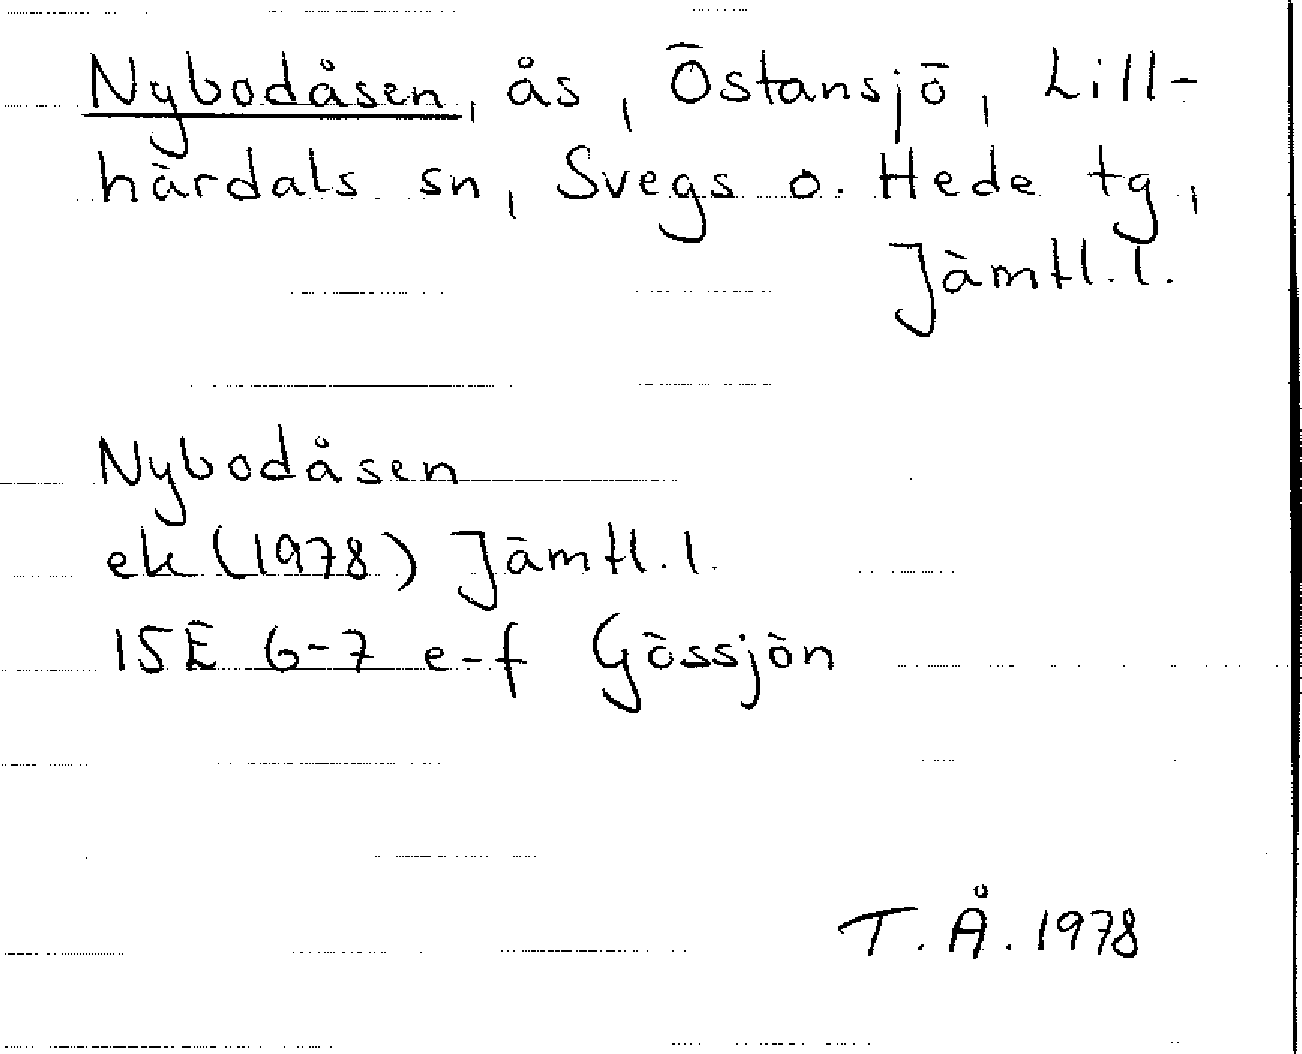 Nybodåsen, ås, Östansjö, Lill-
härdals sn, Svegs o. Hede tg,
Jämtl.l.
Nybodåsen
ek (1978) Jämtl.l.
15E 6-7 e-f Gössjön
T.Å. 1978